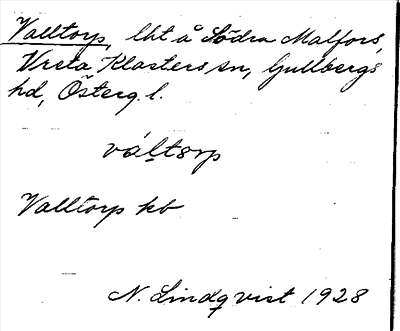 Valltorp, lht å Södra Malfors,
Vreta Klosters sn, Gullbergs
hd, Österg. l.
váltorp
Valltorp kb
N. Lindqvist 1928